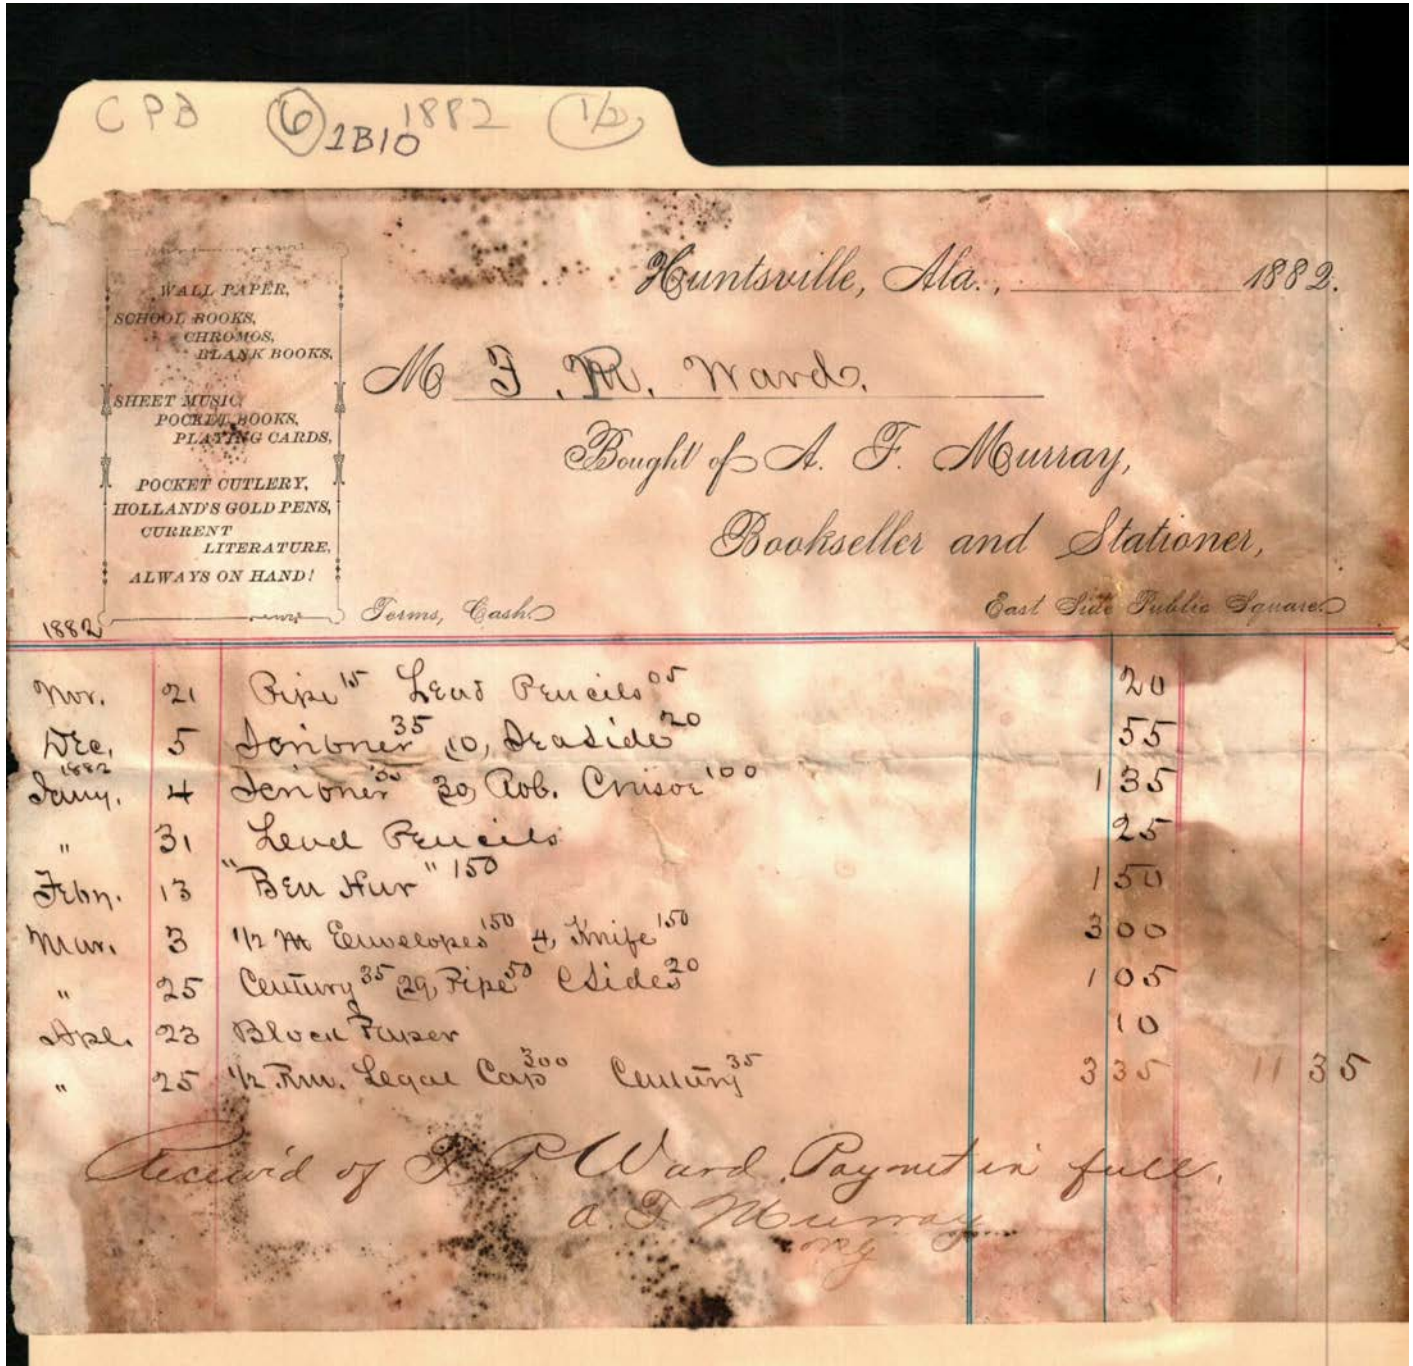 CPB 6 1882 1/2
2B10
WALL PAPER,
SCHOOL BOOKS,
CHROMOS,
BLANK BOOKS,
SHEET MUSIC,
POCKET BOOKS,
PLAYING CARDS,
POCKET CUTLERY,
HOLLAND'S GOLD PENS,
CURRENT
LITERATURE,
ALWAYS ON HAND!
Huntsville, Ala., 1882.
M T. R. Ward.
Bought of A. F. Murray,
Bookseller and Stationer,
Terms, Cash. East Side Public Square.
1882
Nov. 21 Pipe 15 Lead Pencils 05 20
Dec. 5 Scribner 35 10, Seaside 20 55
1882
Jany. 4 Scribner 35 30, Rob. Crusoe 100 1 35
" 31 Lead Pencils 25
Feby. 13 "Ben Hur" 150 1 50
Mar. 3 1/2 M Envelopes 150 4, Knife 150 3 00
" 25 Century 35 29, Pipe 50 Sides 20 1 05
Apl. 23 Block Paper 10
" 25 1/2 Rm. Legal Cap 300 Century 35 3 35 11 35
Receiv'd of T. R. Ward. Paymet in full.
A. F. Murray